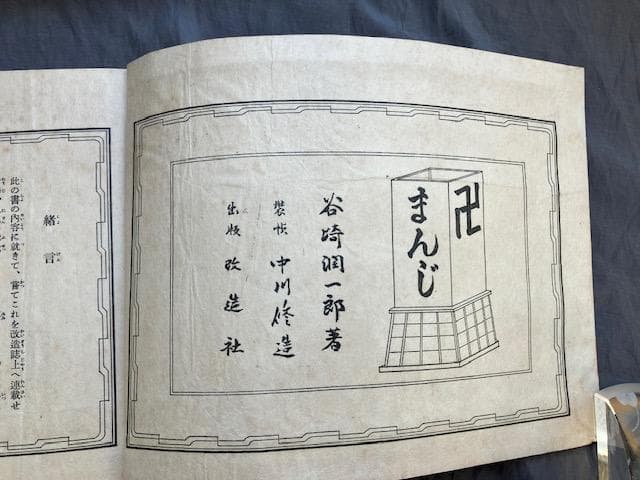 卍
まんじ
谷崎潤一郎著
装幀 中川修造
出版 改造社
緒言
此の書の内容に就きて、嘗てこれを改造誌上へ連載せ